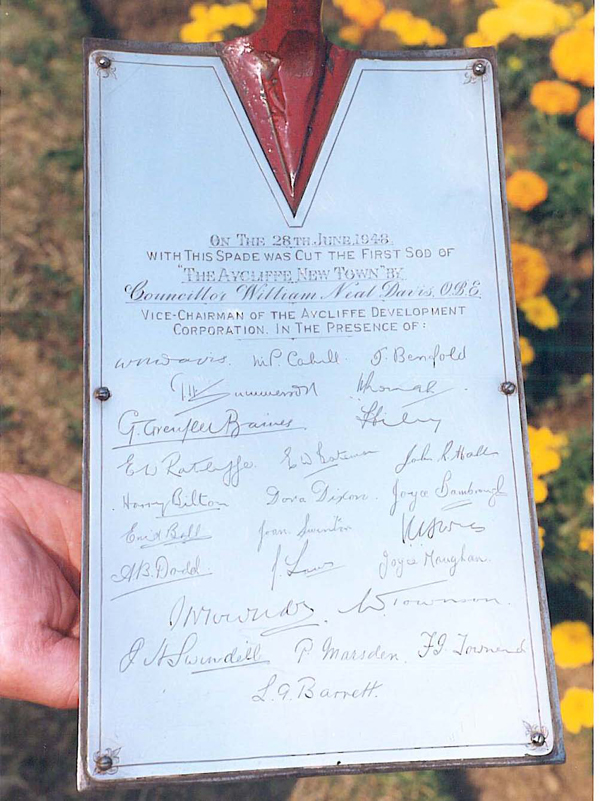 ON THE 28TH JUNE, 1948.
WITH THIS SPADE WAS CUT THE FIRST SOD OF
"THE AYCLIFFE NEW TOWN" BY
Councillor William Neal Davis, O.B.E.
VICE-CHAIRMAN OF THE AYCLIFFE DEVELOPMENT
CORPORATION. IN THE PRESENCE OF:
WN Davis. M.P. Cahill. J. Benfold
Summerson
G. Grenfell Baines
E W Ratcliffe. E W Bateman John R Hall
Harry Bilton Dora Dixon. Joyce Bambrough
Enid Bell Joan Swinton
A.B. Dodd J. Law Joyce Maughan.
W. Townson.
J H Swindell P Marsden. F J Townend
L. G. Barrett.